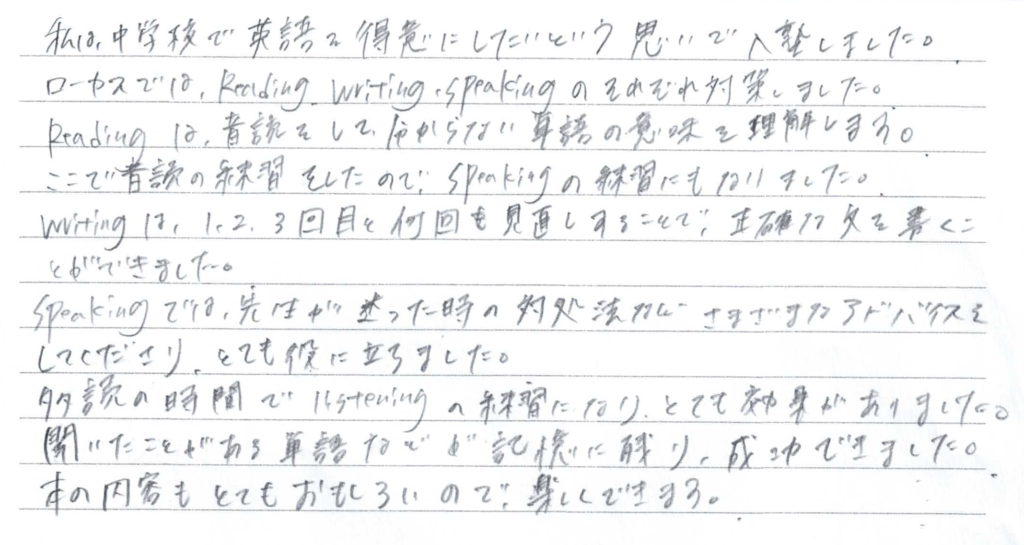 私は、中学校で英語を得意にしたいという思いで入塾しました。
ローカスでは、Reading、writing、speakingのそれぞれ対策しました。
Readingは、音読をして、分からない単語の意味を理解します。
ここで音読の練習をしたので、speakingの練習にもなりました。
writingは、1、2、3回目と何回も見直しすることで、正確な文を書くこ
とができました。
speakingでは、先生が迷った時の対処法など さまざまなアドバイスを
してくださり、とても役に立ちました。
多読の時間でlisteningの練習になり、とても効果がありました。
聞いたことがある単語などが記憶に残り、成功できました。
本の内容もとてもおもしろいので、楽しくできます。